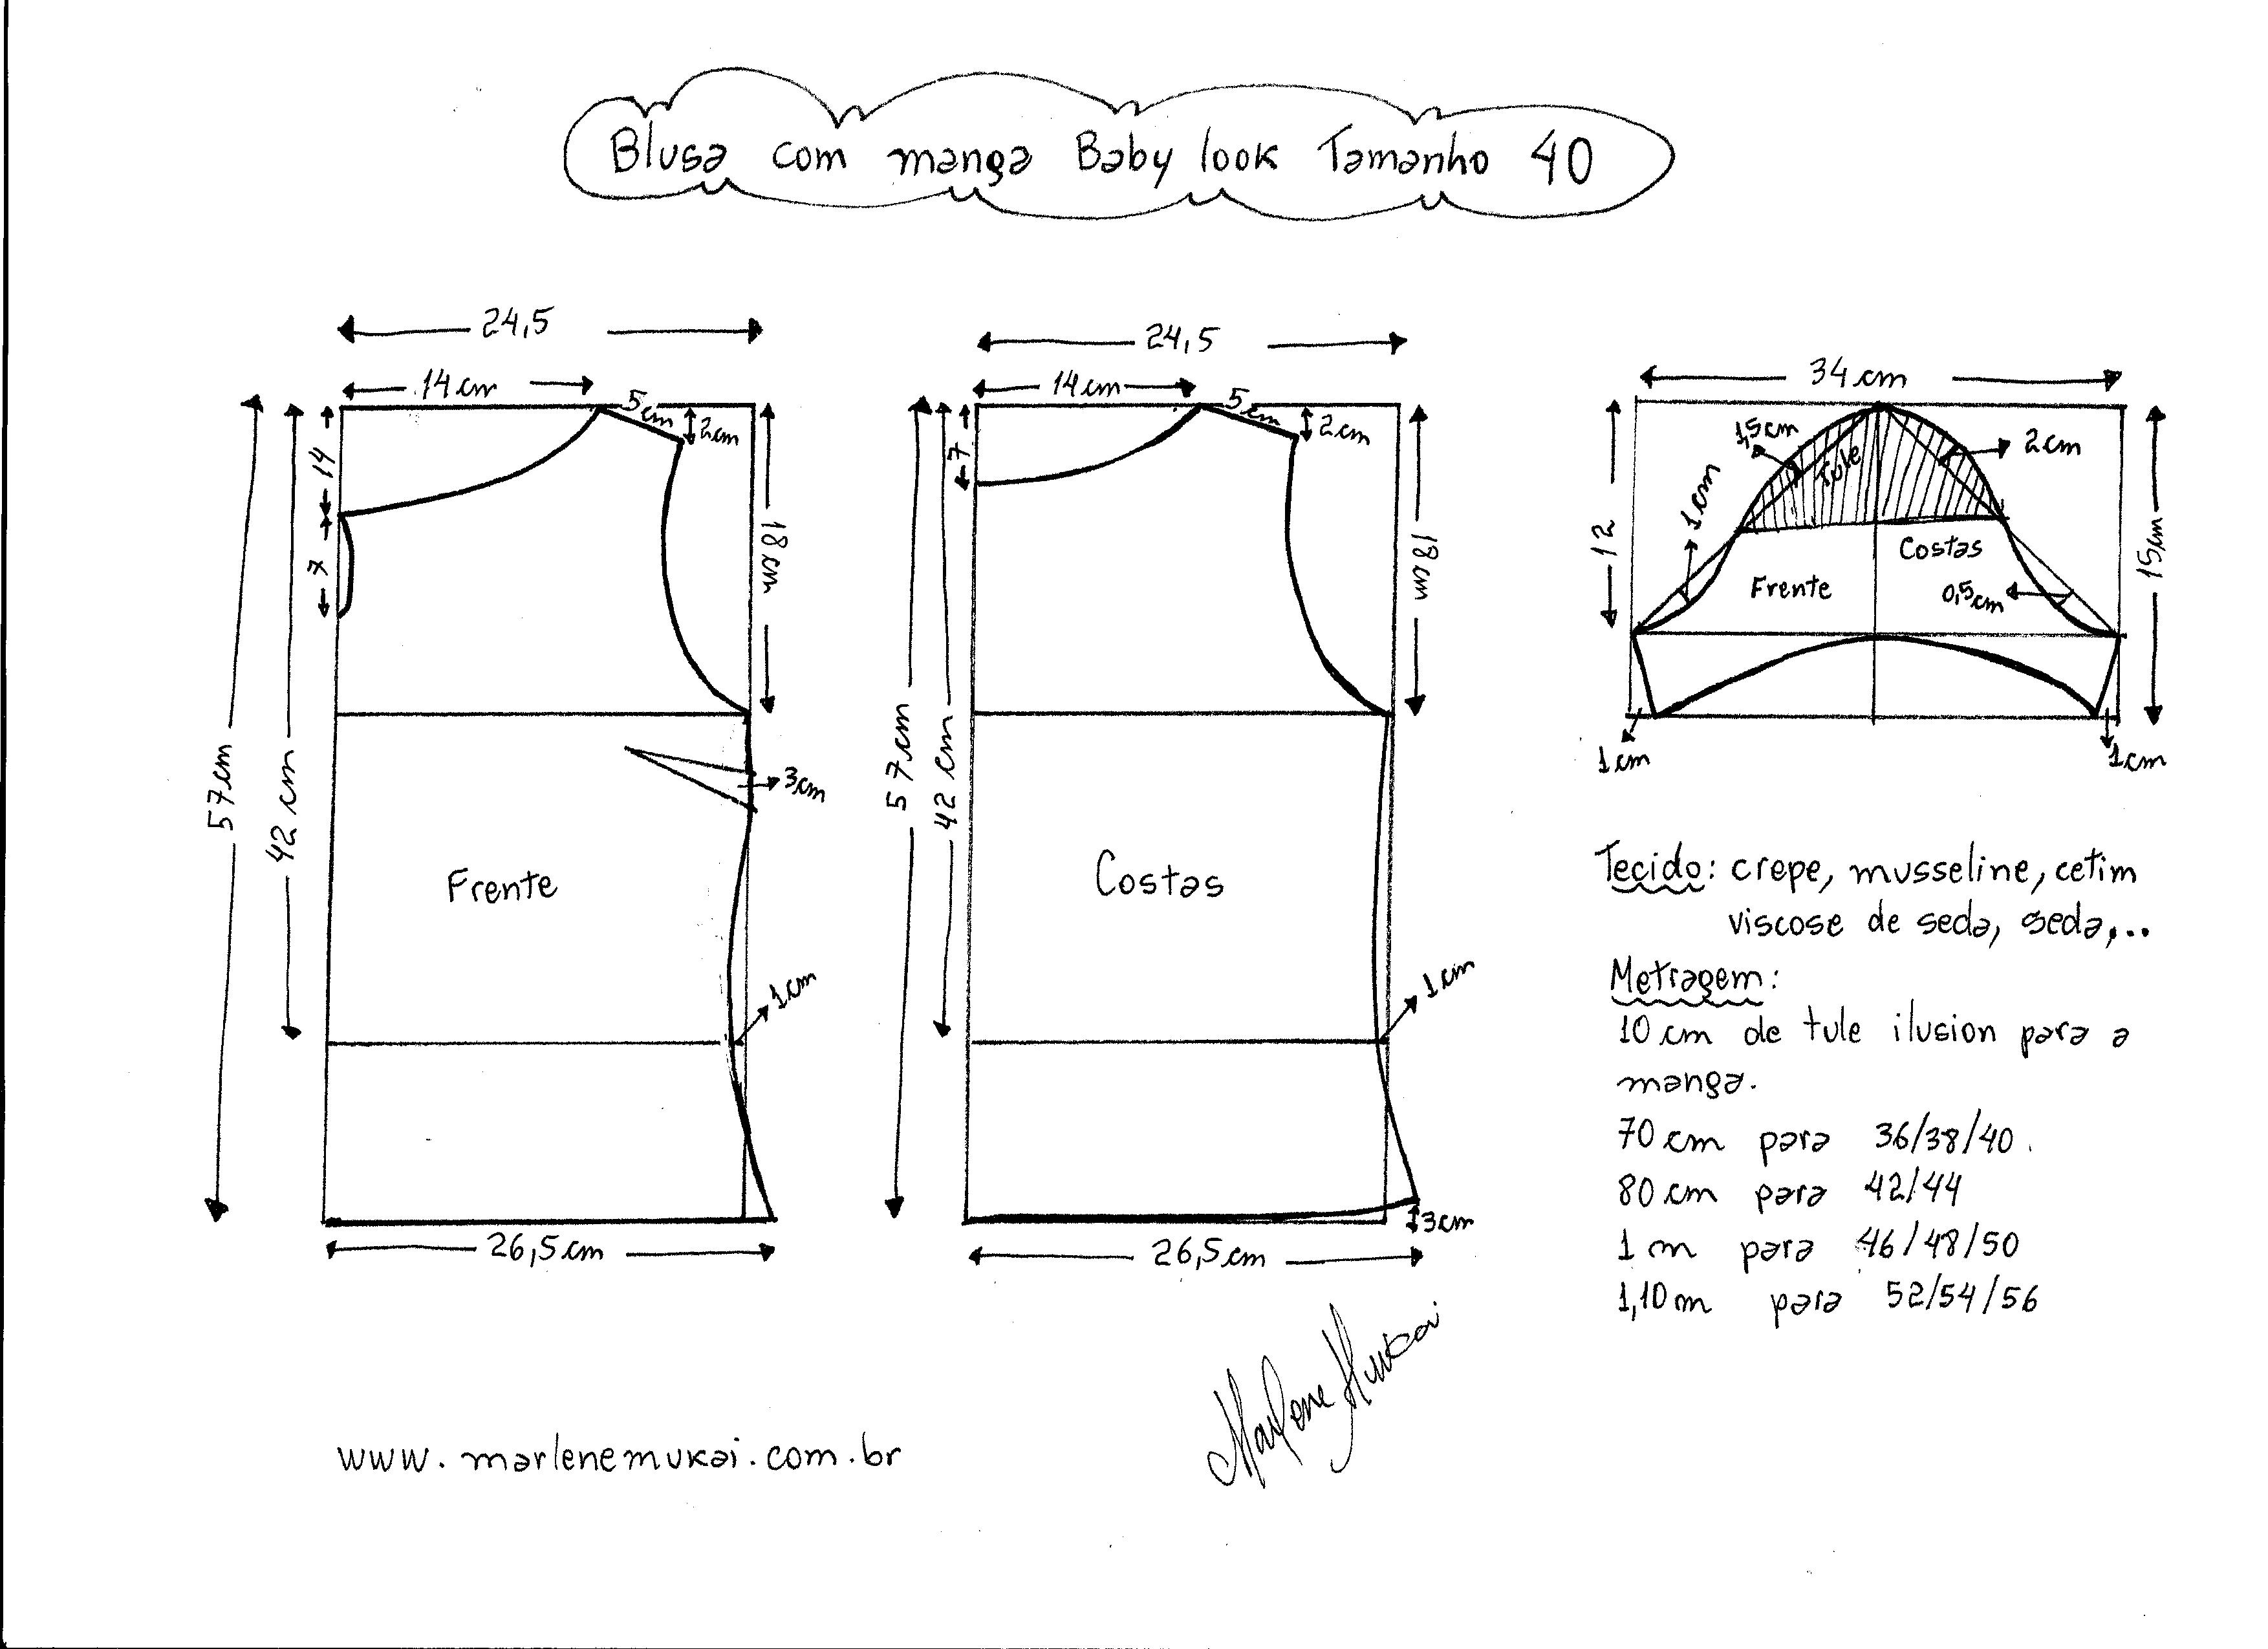 Blusa com manga Baby look Tamanho 40
24,5
14 cm
5 cm
2 cm
14
7
18 cm
3 cm
57 cm
42 cm
Frente
1 cm
26,5 cm
24,5
14 cm
5 cm
2 cm
7
18 cm
57 cm
42 cm
Costas
1 cm
3 cm
26,5 cm
34 cm
1,5 cm
Tule
2 cm
1 cm
12
15 cm
Costas
Frente
0,5 cm
1 cm
1 cm
Tecido: crepe, musseline, cetim
viscose de seda, seda,...
Metragem:
10 cm de tule ilusion para a
manga.
70 cm para 36/38/40.
80 cm para 42/44
1 m para 46/48/50
1,10 m para 52/54/56
Marlene Mukai
www.marlenemukai.com.br